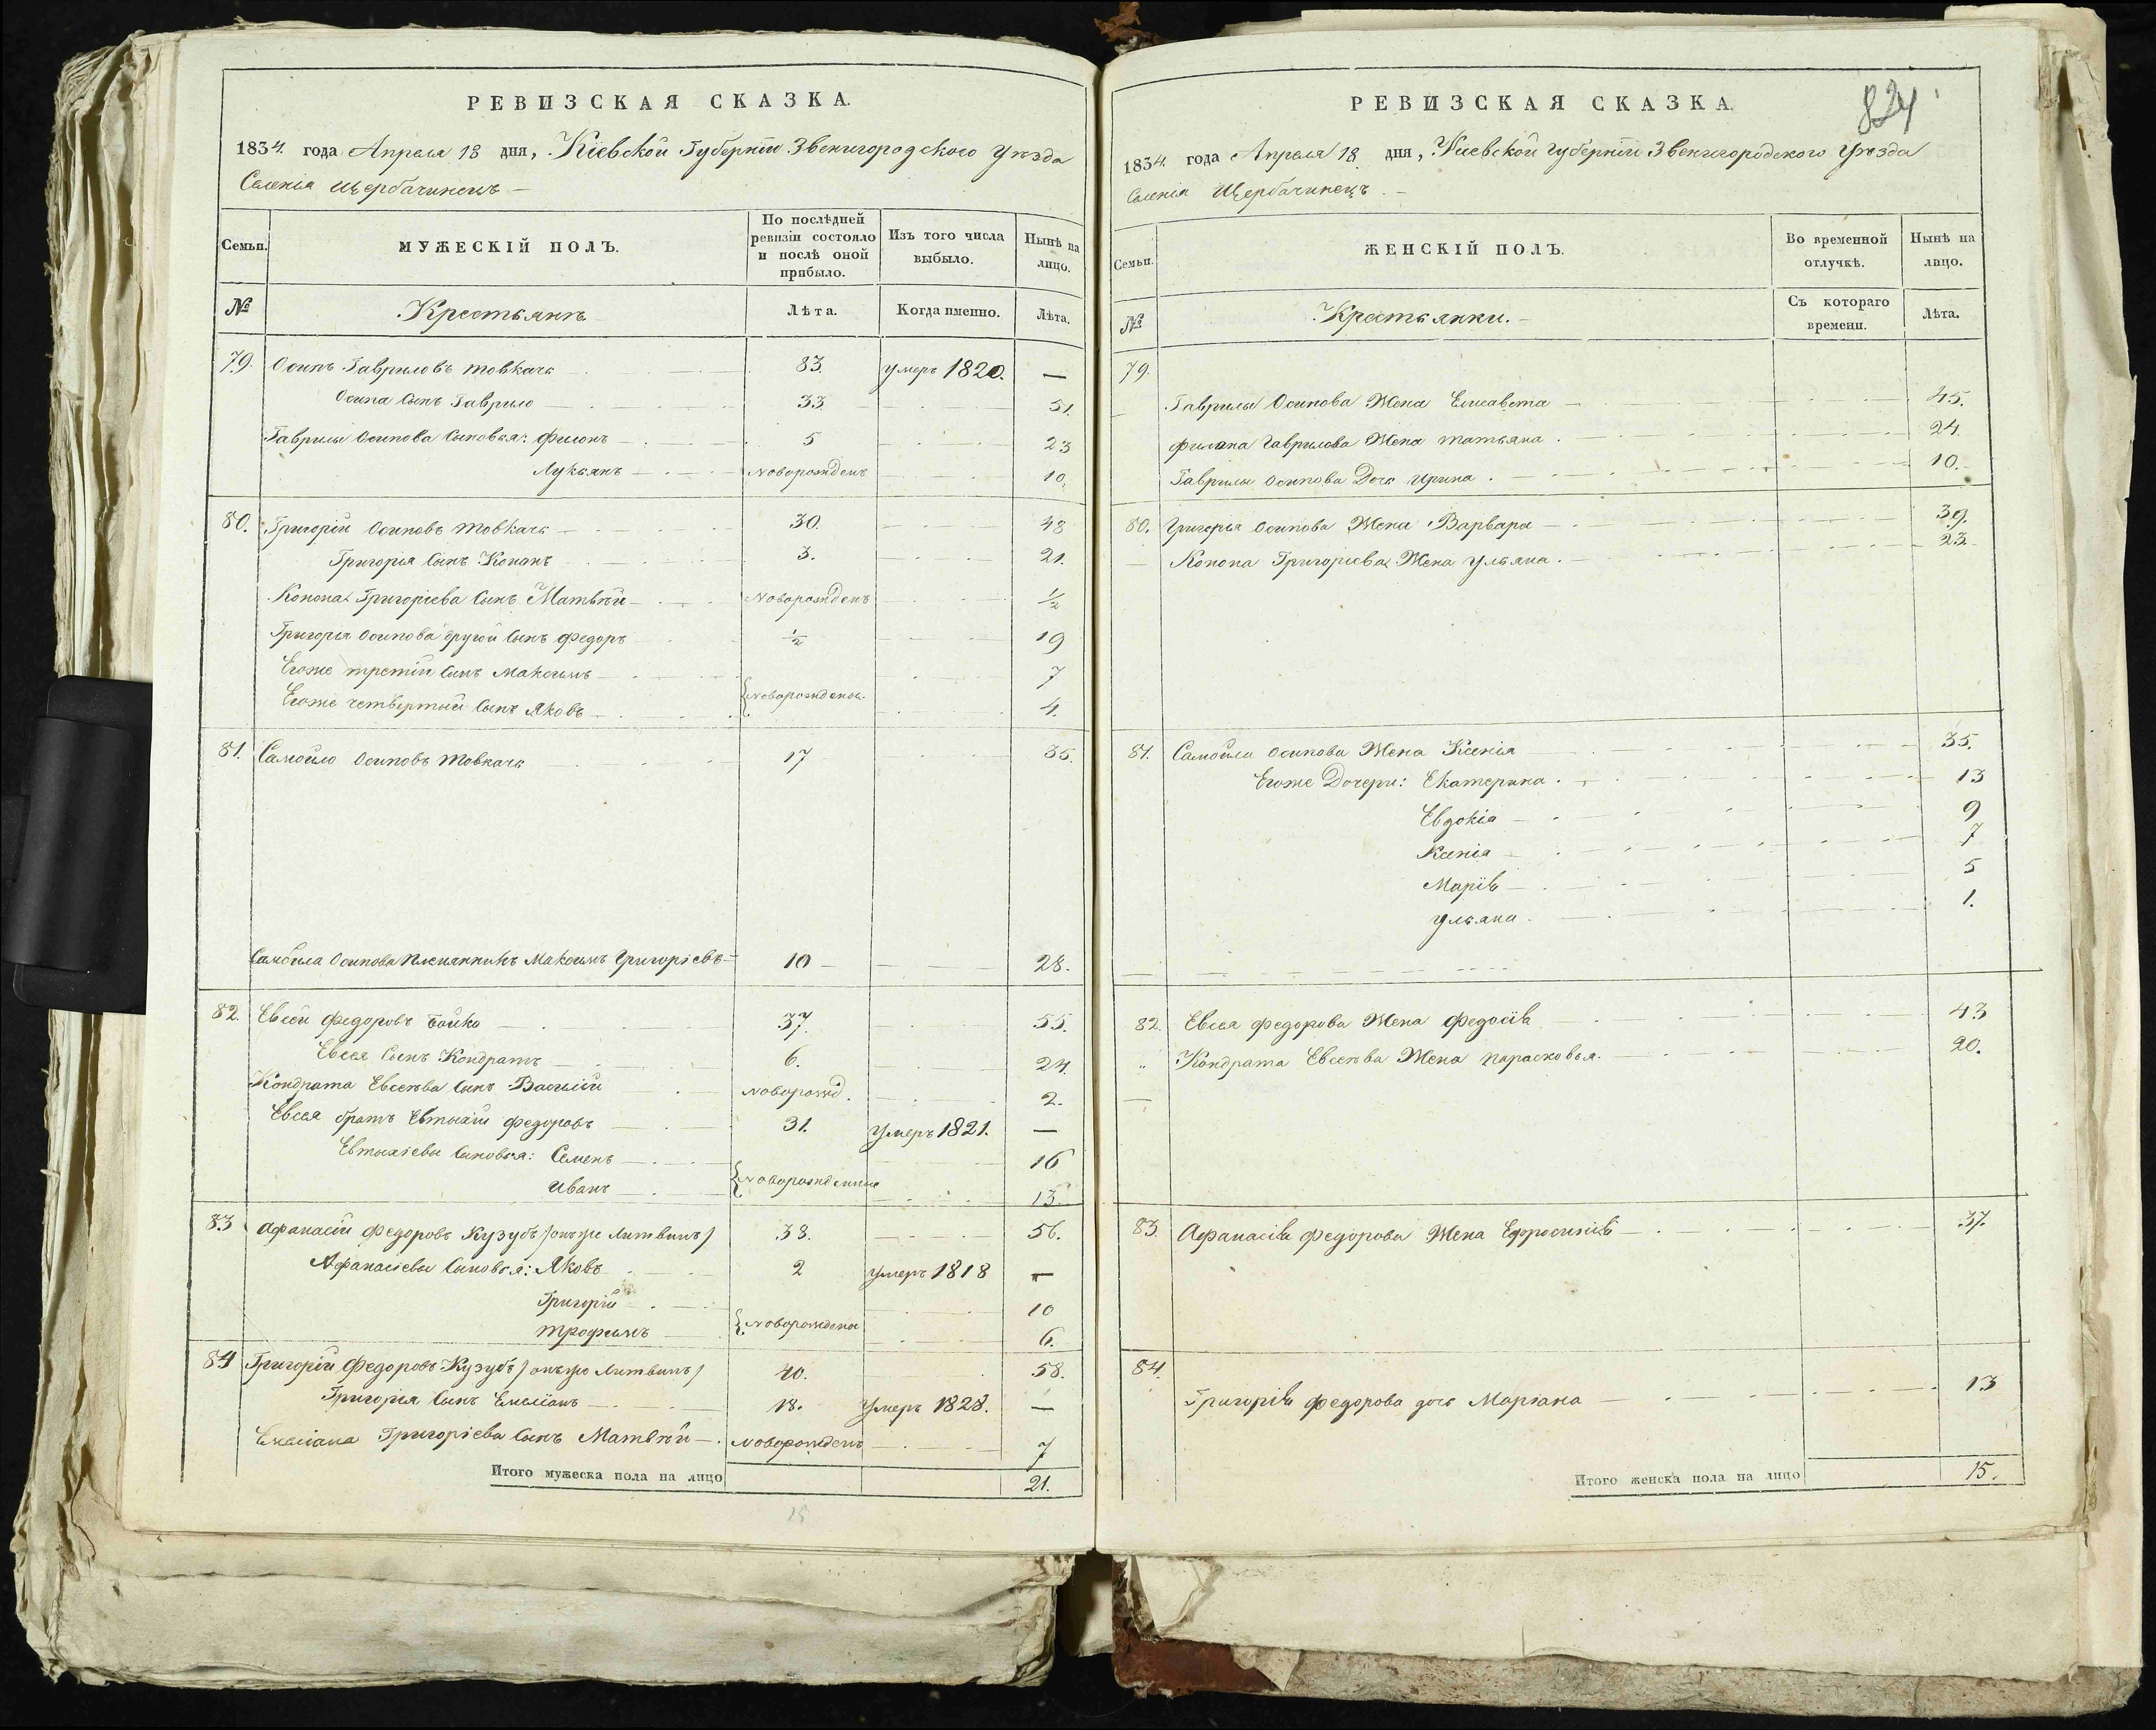 РЕВИЗСКАЯ СКАЗКА.
1834. года Апреля 18 дня, Кіевской Губерніи Звенигородского Уѣзда
Селенія Щербачинецъ —
Семьи.
МУЖЕСКІЙ ПОЛЪ.
По послѣдней ревизіи состояло и послѣ оной прибыло.
Изъ того числа выбыло.
Нынѣ на лицо.
№ Крестьянъ Лѣта. Когда именно. Лѣта.
79. Осипъ Гавриловъ Товкачь 83. умеръ 1820. —
Осипа Сынъ Гаврило 33. 51.
Гаврилы Осипова Сыновья: Филонъ 5 23
Лукьянъ Новорожденъ 10.
80. Григорій Осиповъ Товкачь 30. 48
Григорія Сынъ Кононъ 3. 21.
Конона Григоріева Сынъ Матвѣй Новорожденъ 1/2
Григорія Осипова другой Сынъ Федоръ 1/2 19
Егоже третій Сынъ Максимъ 7
Егоже четвертый Сынъ Яковъ Новорождены. 4.
81. Самойло Осиповъ Товкачь 17 35.
Самойла Осипова Племянникъ Максимъ Григоріевъ 10 28.
82. Евсей Федоровъ Бойко 37. 55.
Евсея Сынъ Кондратъ 6. 24.
Кондрата Евсеѣва Сынъ Василій Новорожд. 2.
Евсея братъ Евтихій Федоровъ 31. Умеръ 1821. —
Евтихіевы Сыновья: Семенъ 16
Иванъ Новорожденные 13.
83 Афанасій Федоровъ Кузубъ /онъже Литвинъ/ 38. 56.
Афанасіевы Сыновья: Яковъ 2 Умеръ 1818 —
Григорій 10
Трофимъ Новорождены 6.
84 Григорій Федоровъ Кузубъ /онъже Литвинъ/ 40. 58.
Григорія Сынъ Емеліанъ 18. Умеръ 1828. —
Емеліана Григоріева Сынъ Матвѣй Новорожденъ 7
Итого мужеска пола на лицо 21.
15
824
РЕВИЗСКАЯ СКАЗКА.
1834. года Апреля 18 дня, Киевской Губерніи Звенигородского Уѣзда
Селенія Щербачинецъ. —
Семьи.
ЖЕНСКІЙ ПОЛЪ.
Во временной отлучкѣ.
Нынѣ на лицо.
№ Крестьянки. — Съ котораго времени. Лѣта.
79.
Гаврилы Осипова Жена Елисавета 45.
Филона Гаврилова Жена Татьяна 24.
Гаврилы Осипова Дочь Ирина 10.
80. Григорья Осипова Жена Варвара 39.
Конона Григоріева Жена Ульяна. 23.
81. Самойла Осипова Жена Ксенія 35.
Егоже Дочери: Екатерина 13
Евдокіа 9
Ксеніа 7
Маріѣ 5
Ульяна 1.
82. Евсея Федорова Жена Федосіѣ 43
" Кондрата Евсеѣва Жена Парасковья. 20.
83. Афанасіѣ Федорова Жена Ефросиніѣ 37.
84.
Григоріѣ Федорова дочь Маріана 13
Итого женска пола на лицо 15.